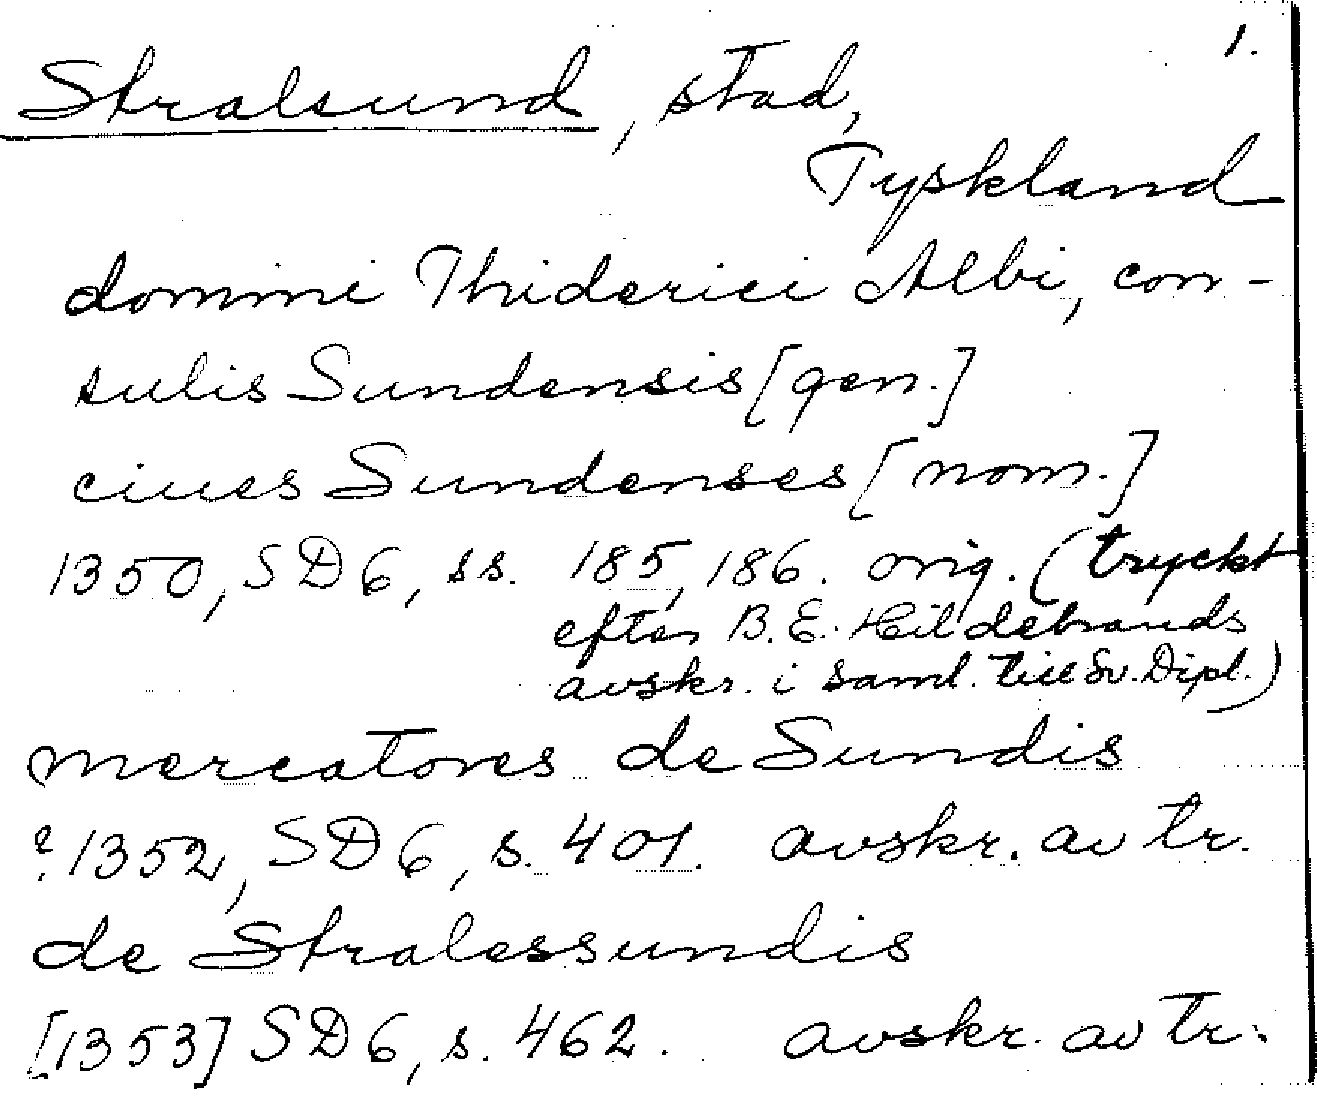 1.
Stralsund, stad,
Tyskland
domini Thiderici Albi, con-
sulis Sundensis [gen.]
ciues Sundenses [nom.]
1350, SD 6, ss. 185, 186. orig. (tryckt
efter B. E. Hildebrands
avskr. i saml. till Sv. Dipl.)
mercatores de Sundis
? 1352, SD 6, s. 401. avskr. av tr.
de Stralessundis
[1353] SD 6, s. 462. avskr. av tr.